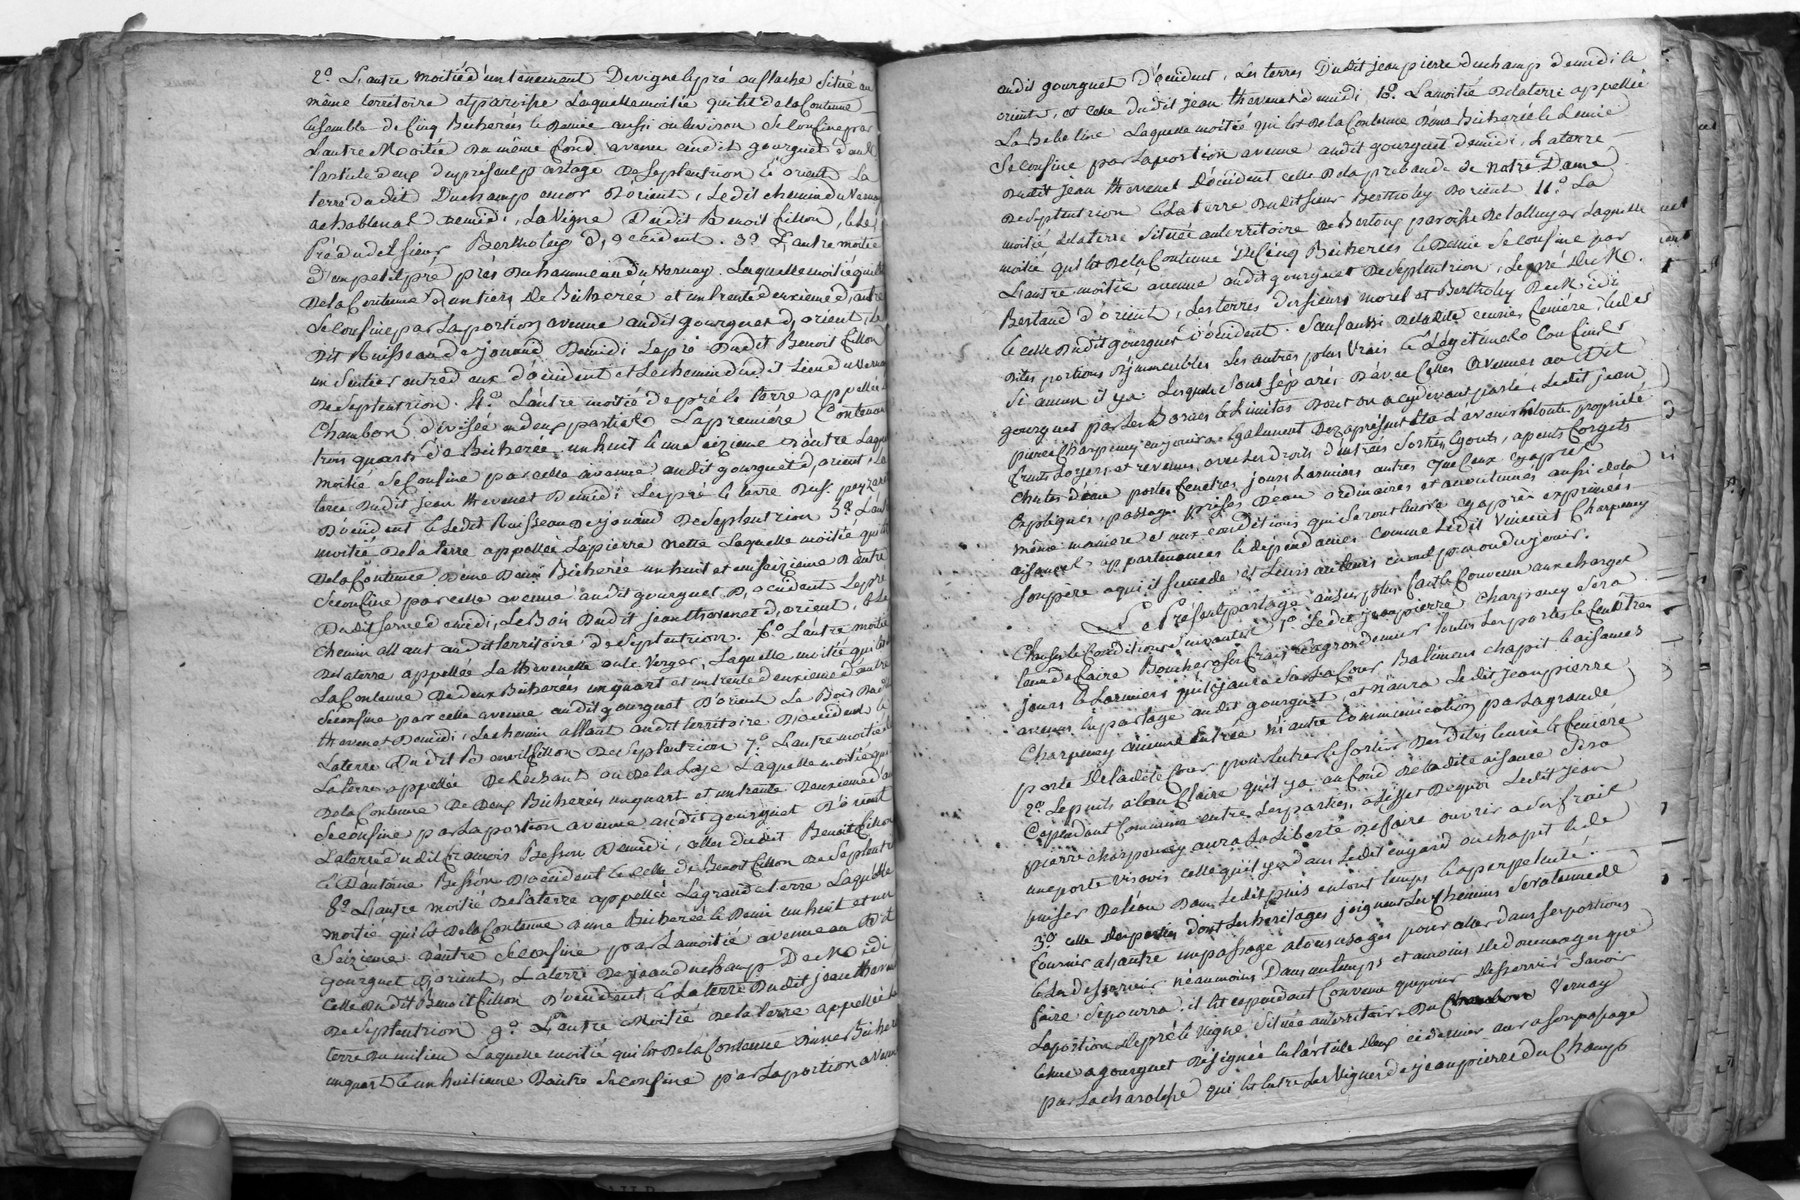 2.º L'autre moitié d'un tenement De vigne le pré ou flache Situé au
même territoire et paroisse Laquelle moitiée qui est de la Contenue
Ensemble de Cinq Bicherées le Demie aussi ou environ Se Confine par
L'autre Moitié Du même fond avenue audit gourguet d'
l'article Deux Du present partage De Septentrion Et orient La
terre dudit Duchamp encor D'orient, Ledit chemin du Verna
De midi, La Vigne Dudit Benoit fillon, & le
Pré dudit Sieur Bertholey D'occident. 3.º L'autre moitié
d'un petit pré près Du hammeau du Vernay. Laquelle moitié qui est
De la Contenue d'un tiers De Bicherée et un trente deuxieme d'autre
Se Confine par La portion avenue audit gourguet d'orient, le
Dit Ruisseau de jonand De midi Le pré Dudit Benoit fillon
un Sentier entre d'eux d'occident et Le chemin dudit Lieu du Vernay
De Septentrion. 4.º L'autre moitié de pré le terre appellée
Chambon divisée en deux parties La premiére Contenant
trois quarts De Bicherée un huit le un Seizieme D'autre Laquelle
moitié Se Confine par celle avenue audit gourguet d'orient, La
terre Dudit Jean thevenet De midi Les pré le terre Du S. peyzar
D'occident le Ledit Ruisseau De jonand De Septentrion 5.º L'autre
moitié De la terre appellée La pierre nette Laquelle moitié qui est
De la Contenue D'une Demi Bicherée un huit et un Seizieme D'autre
Se confine par celle avenue audit gourguet D'occident Le pré
Dudit De midi, Le Bois Dudit jean thevenet d'orient, & Le
Chemin allant audit territoire De Septentrion. 6.º L'autre moitié
De la terre appellée La thevenette ou le Verger, Laquelle moitié qui est
La Contenue De deux Bicherées un quart et un trente deuxieme d'autre
Se confine par celle avenue audit gourguet D'orient Le Bois Dudit
thevenet De midi, Le chemin allant audit territoire D'occident &
La terre Dudit Benoit fillon De Septentrion 7.º L'autre moitié de
La terre appellée De ou De la Laquelle moitié qui est
De la Contenue De Deux Bicherées un quart et un trente Deuxieme d'autre
Se Confine par La portion avenue audit gourguet D'orient
La terre dudit francois Besson De midi, celles dudit Benoit fillon
& D'antoine Besson D'occident le Celle de Benoit fillon De Septentrion
8.º L'autre moitié De la terre appellée La grande terre Laquelle
moitié qui est De la Contenue D'une Bicherée le Demi un huit et un
Seizieme D'autre Se confine par La moitié avenue au Dit
gourguet D'orient, La terre De jean duchamp De Midi
Celle Dudit Benoit fillon D'occident, le La terre Dudit jean thevenet
De Septentrion 9.º L'autre Moitié De la terre appellée la
terre Du milieu Laquelle moitié qui est De la Contenue D'une Bicherée
un quart le un huitieme D'autre Se confine par La portion avenue
audit gourguet D'occident, Les terres Dudit jean pierre duchamp De midi le
orient, et celle dudit jean thevenet De midi, 10.º La moitié De la terre appellée
La Bebeline Laquelle moitié qui est De la Contenue D'une Bicherée le Demie
Se confine par La portion avenue audit gourguet De midi, La terre
Dudit jean thevenet D'occident celle De la prebande de Notre Dame
De Septentrion le La terre Dudit Sieur Bertholey D'orient 11.º La
moitié De la terre Située au territoire De Bertoux paroisse De talluyer Laquelle
moitié qui est De la Contenue De Cinq Bicherées le Demie Se confine par
L'autre moitié avenue audit gourguet De Septentrion, Le pré Du R.
Bertaud d'orient, Les terres Des Sieurs morel et Bertholey De Midi
le celle Dudit gourguet D'occident. Sauf aussi De la Dite Les des
Dites portions D'immeubles Les autres plus Vrais le Légitimes Confins
Si aucun il y a Lesquels Sont Séparés D'avec Celles Avenues au Dit
gourguet par Les Bornes le Limites Dont on a cydevant parlé, Ledit jean
pierre Charpenay en jouira Egalement Dez aprésent Et a l'avenir En toute propriété
fruits Loyers, et revenus, avec Les Droits D'entrées Sorties, Egouts, apents forgets
Chutes D'eau portes fenetres jours Larmiers autres Que Ceux cyaprès
Expliqués, passage prises D'eau ordinaires et accoutumées aussi De la
même manière et aux conditions qui Seront Encore cy aprés exprimées
aisances appartenances le dépendances Comme Ledit Vincent Charpenay
Son pere aqui il Succede et Leurs auteurs en ont pu ou du jouir.
Le Présent partage aux Surplus fait le Convenu aux charges
Clauses le Conditions Suivantes 1.º Ledit jean pierre Charpenay Sera
tenu de faire Boucher a Ses frais Toutes Les portes le fenetres
jours le Larmiers qu'il y aura Sur La Cour Batimens chapit le aisances
avenus en partage audit gourguet, et n'aura Ledit jean pierre
Charpenay aucune Entrée ni autre Communication par La grande
porte De la dite Cour pour Entrer le Sortir Des dites
2.º Le puits a l'eau Claire qu'il y a au fond De la dite aisance Sera
Cependant Commun entre Les parties, a L'effet De quoi Ledit jean
pierre charpenay aura La Liberté De faire ouvrir a Ses fraix
une porte vis avis celle qu'il y a dans Ledit engard ou chapit le de
puiser De l'eau Dans Ledit puis en tout temps le a perpetuité.
3.º Celle Des parties dont Les héritages joignent Les Chemins Sera tenue de
fournir a L'autre un passage a tous usages pour aller dans Ses portions
le Les Desservir néanmoins Dans un temps et au moins De dommages que
faire Se pourra. il Est cependant Convenu que pour Desservir Savoir
La portion De pré le Vigne Située au territoire Du Vernay
avenue a gourguet Désignée En L'article Deux ci dernier aura Son passage
par La charoliere qui Est Entre Les Vignes de jean pierre du Champ